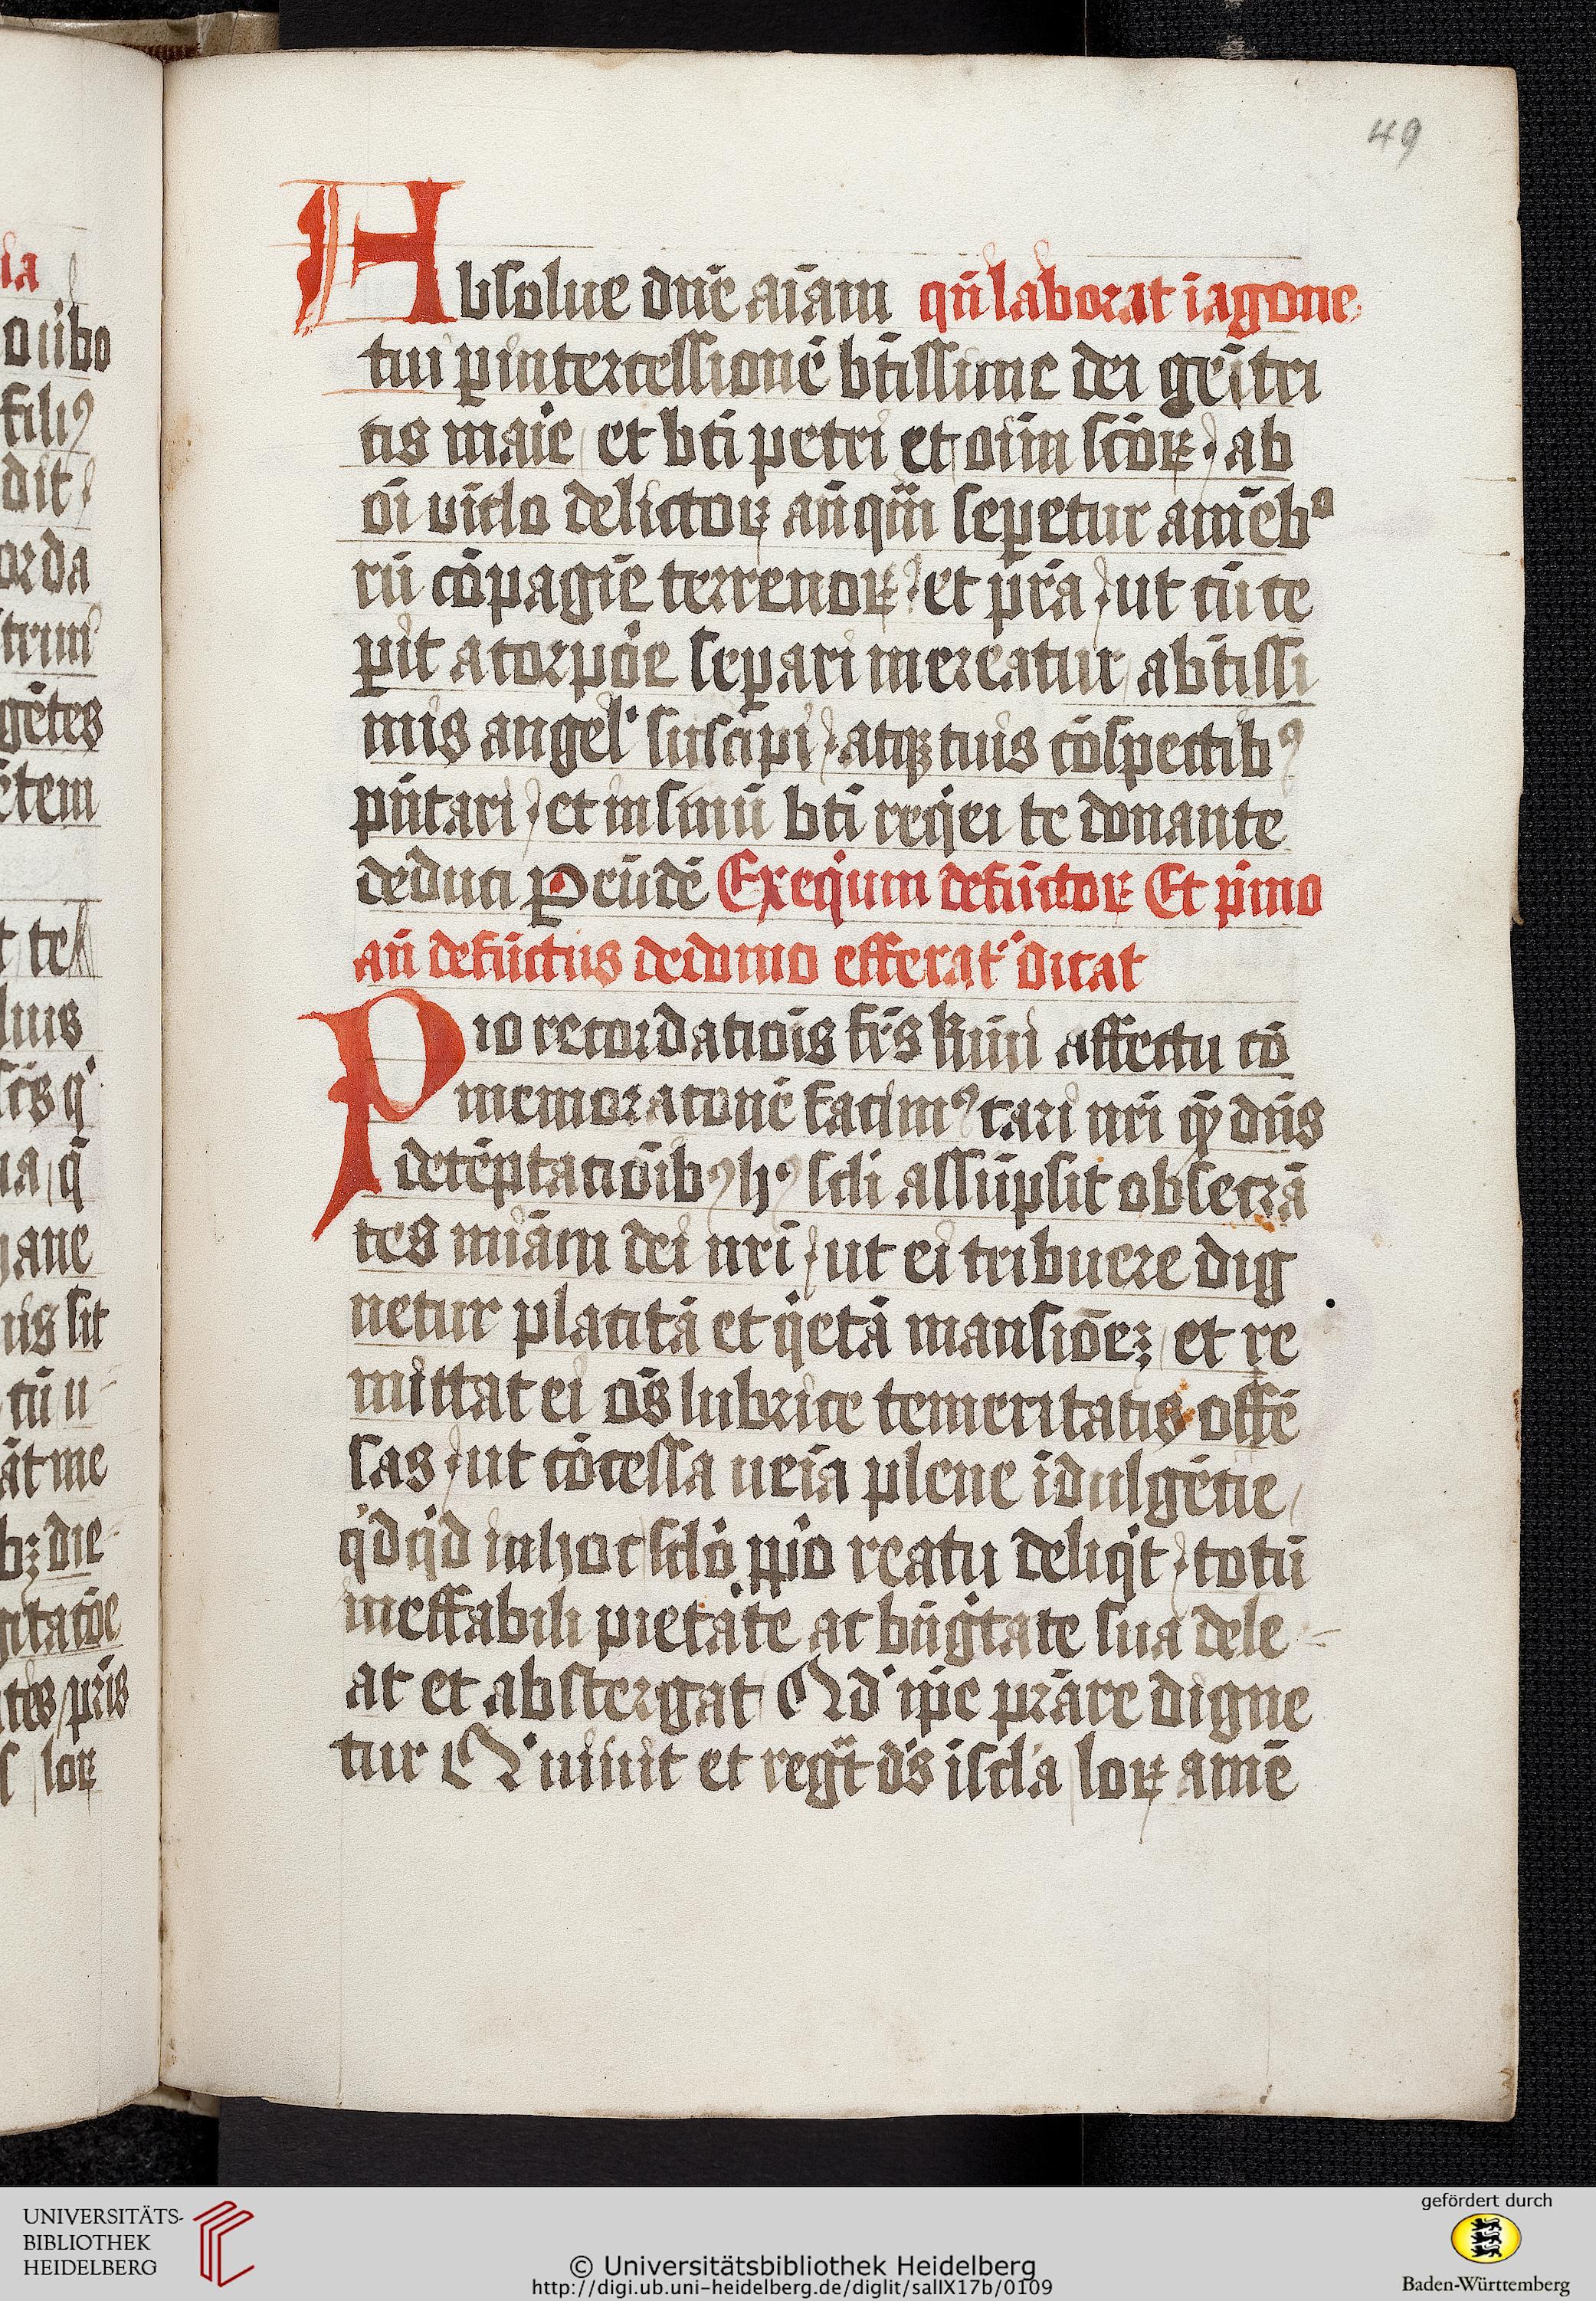 49
Absolue dn̄e aīam qn̄ laborat ī agone
tui ꝑ intercessionē bt̄issime dei gēitri
cis maīe et bt̄i petri et oīm sc̄oꝝ ab
oī vīclo delictoꝝ an̄qͣm seꝑetur a mēbͦ
rū cōpagīe terrenoꝝ et pr̄a ut cū ce
ꝑit a corpōe seꝑari mereatur a bt̄issi
mis angelˀ suscipi atqꝫ tuis cōspectibꝰ
pn̄tari et in sinū bt̄i reqͥei te donante
deduci ꝑ eūdē Exeqͥum defūctoꝝ Et pͥmo
an̄ defūctus de domo efferat᷑ dicat
Pio recordatiōis fr̄s kr̄mi affectu cō
memoratonē facimꝰ cari nr̄i qͦꝫ dn̄s
de tēptatiōibꝰ hꝰ scl̄i assūpsit obsecrā
tes mīam dei nr̄i ut ei tribuere dig
netur placitā et qͥetā mansiōeꝫ et re
mittat ei oēs lubrice temeritatis offē
sas ut cōcessa ueīa plene īdulgētie
qͥdqͥd in hoc scl̄o ꝓpͥo reatu deliqͥt totū
ineffabili pietate ac bn̄gͥtate sua dele
at et abstergat Qd᷑ ip̄e pr̄āre digne
tur Qͥ uiuit et regͣt dˢ ī scl̄a loꝝ amē
ia
o ūbo
filiꝰ
dit
or da
trum
gētes
ētem
t te
uus
sit
tū u
āt me
bꝫ die
loꝝ
UNIVERSITÄTS-
BIBLIOTHEK
HEIDELBERG
© Universitätsbibliothek Heidelberg
http://digi.ub.uni-heidelberg.de/diglit/salIX17b/0109
gefördert durch
Baden-Württemberg